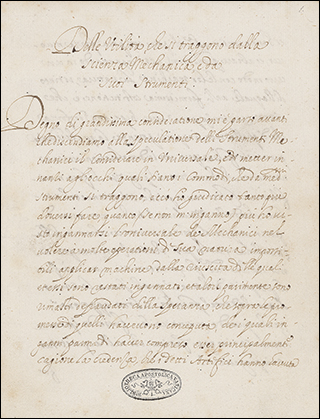 Delle Utilità che si traggono dalla
Scienza Mechanica, e da
suoi Strumenti.
Degno di grandissima consideratione mi è parso avanti
che discendiamo alla speculatione delli strumenti Me
chanici il considerare in Universale, e di metter in
nanti a gl'occhi quali siano i Commodi, che da med.
strumenti si traggono, e ciò ho giudicato tanto piu
doversi fare quanto se non m'inganno, piu ho vis
to ingannarsi l'universale de Mechanici nel
volere a molte operationi di sua natura imposs
ibili applicar machine, dalla riuscita delle qual
et essi sono restati ingannati, et altri parimente sono
rimasti defraudati della speranza che sopra le pro
messe di quelli havevono conceputa, de i quali in
ganni parmi di haver compreso esser principalmente
cagione la credenza che i detti Artefici hanno havuta
BIBLIOTHECA APOSTOLICA VATICANA